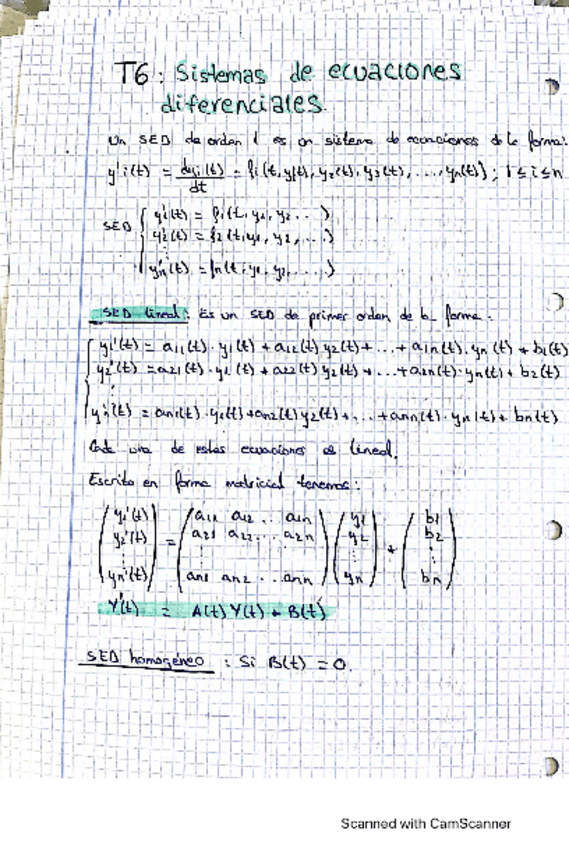 T6: Sistemas de ecuaciones
diferenciales.
Un SED de orden 1 es un sistema de ecuaciones de la forma:
y'i(t) = dyi(t)/dt = fi(t, y1(t), y2(t), y3(t), ..., yn(t)); 1 ≤ i ≤ n
SED { y1'(t) = f1(t, y1, y2 ... )
y2'(t) = f2(t, y1, y2, ... )
⋮
yn'(t) = fn(t, y1, y2, ... )
SED lineal: Es un SED de primer orden de la forma:
{ y1'(t) = a11(t)·y1(t) + a12(t) y2(t) + ... + a1n(t)·yn(t) + b1(t)
y2'(t) = a21(t)·y1(t) + a22(t) y2(t) + ... + a2n(t)·yn(t) + b2(t)
⋮
yn'(t) = an1(t)·y1(t) + an2(t) y2(t) + ... + ann(t)·yn(t) + bn(t)
Cada una de estas ecuaciones es lineal.
Escrito en forma matricial tenemos:
( y1'(t) ) ( a11 a12 ... a1n ) ( y1 ) ( b1 )
( y2'(t) ) = ( a21 a22 ... a2n ) ( y2 ) + ( b2 )
⋮ ⋮ ⋮ ⋮
( yn'(t) ) ( an1 an2 ... ann ) ( yn ) ( bn )
Y'(t) = A(t) Y(t) + B(t)
SED homogéneo: Si B(t) = 0.
Scanned with CamScanner